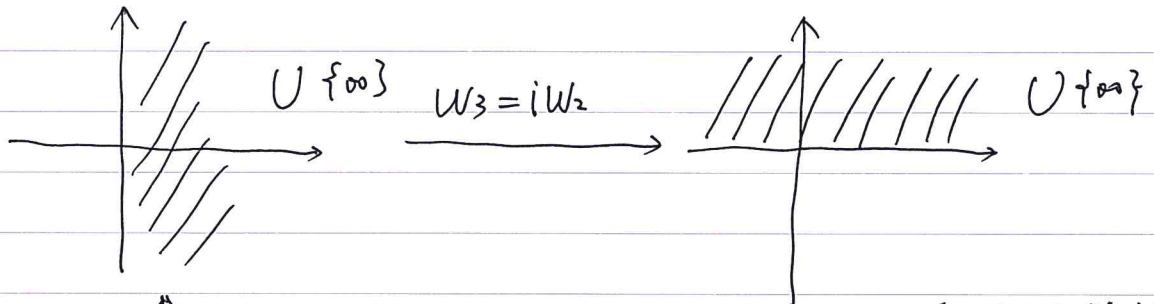 ∪ {∞} w₃ = iw₂ ∪ {∞}